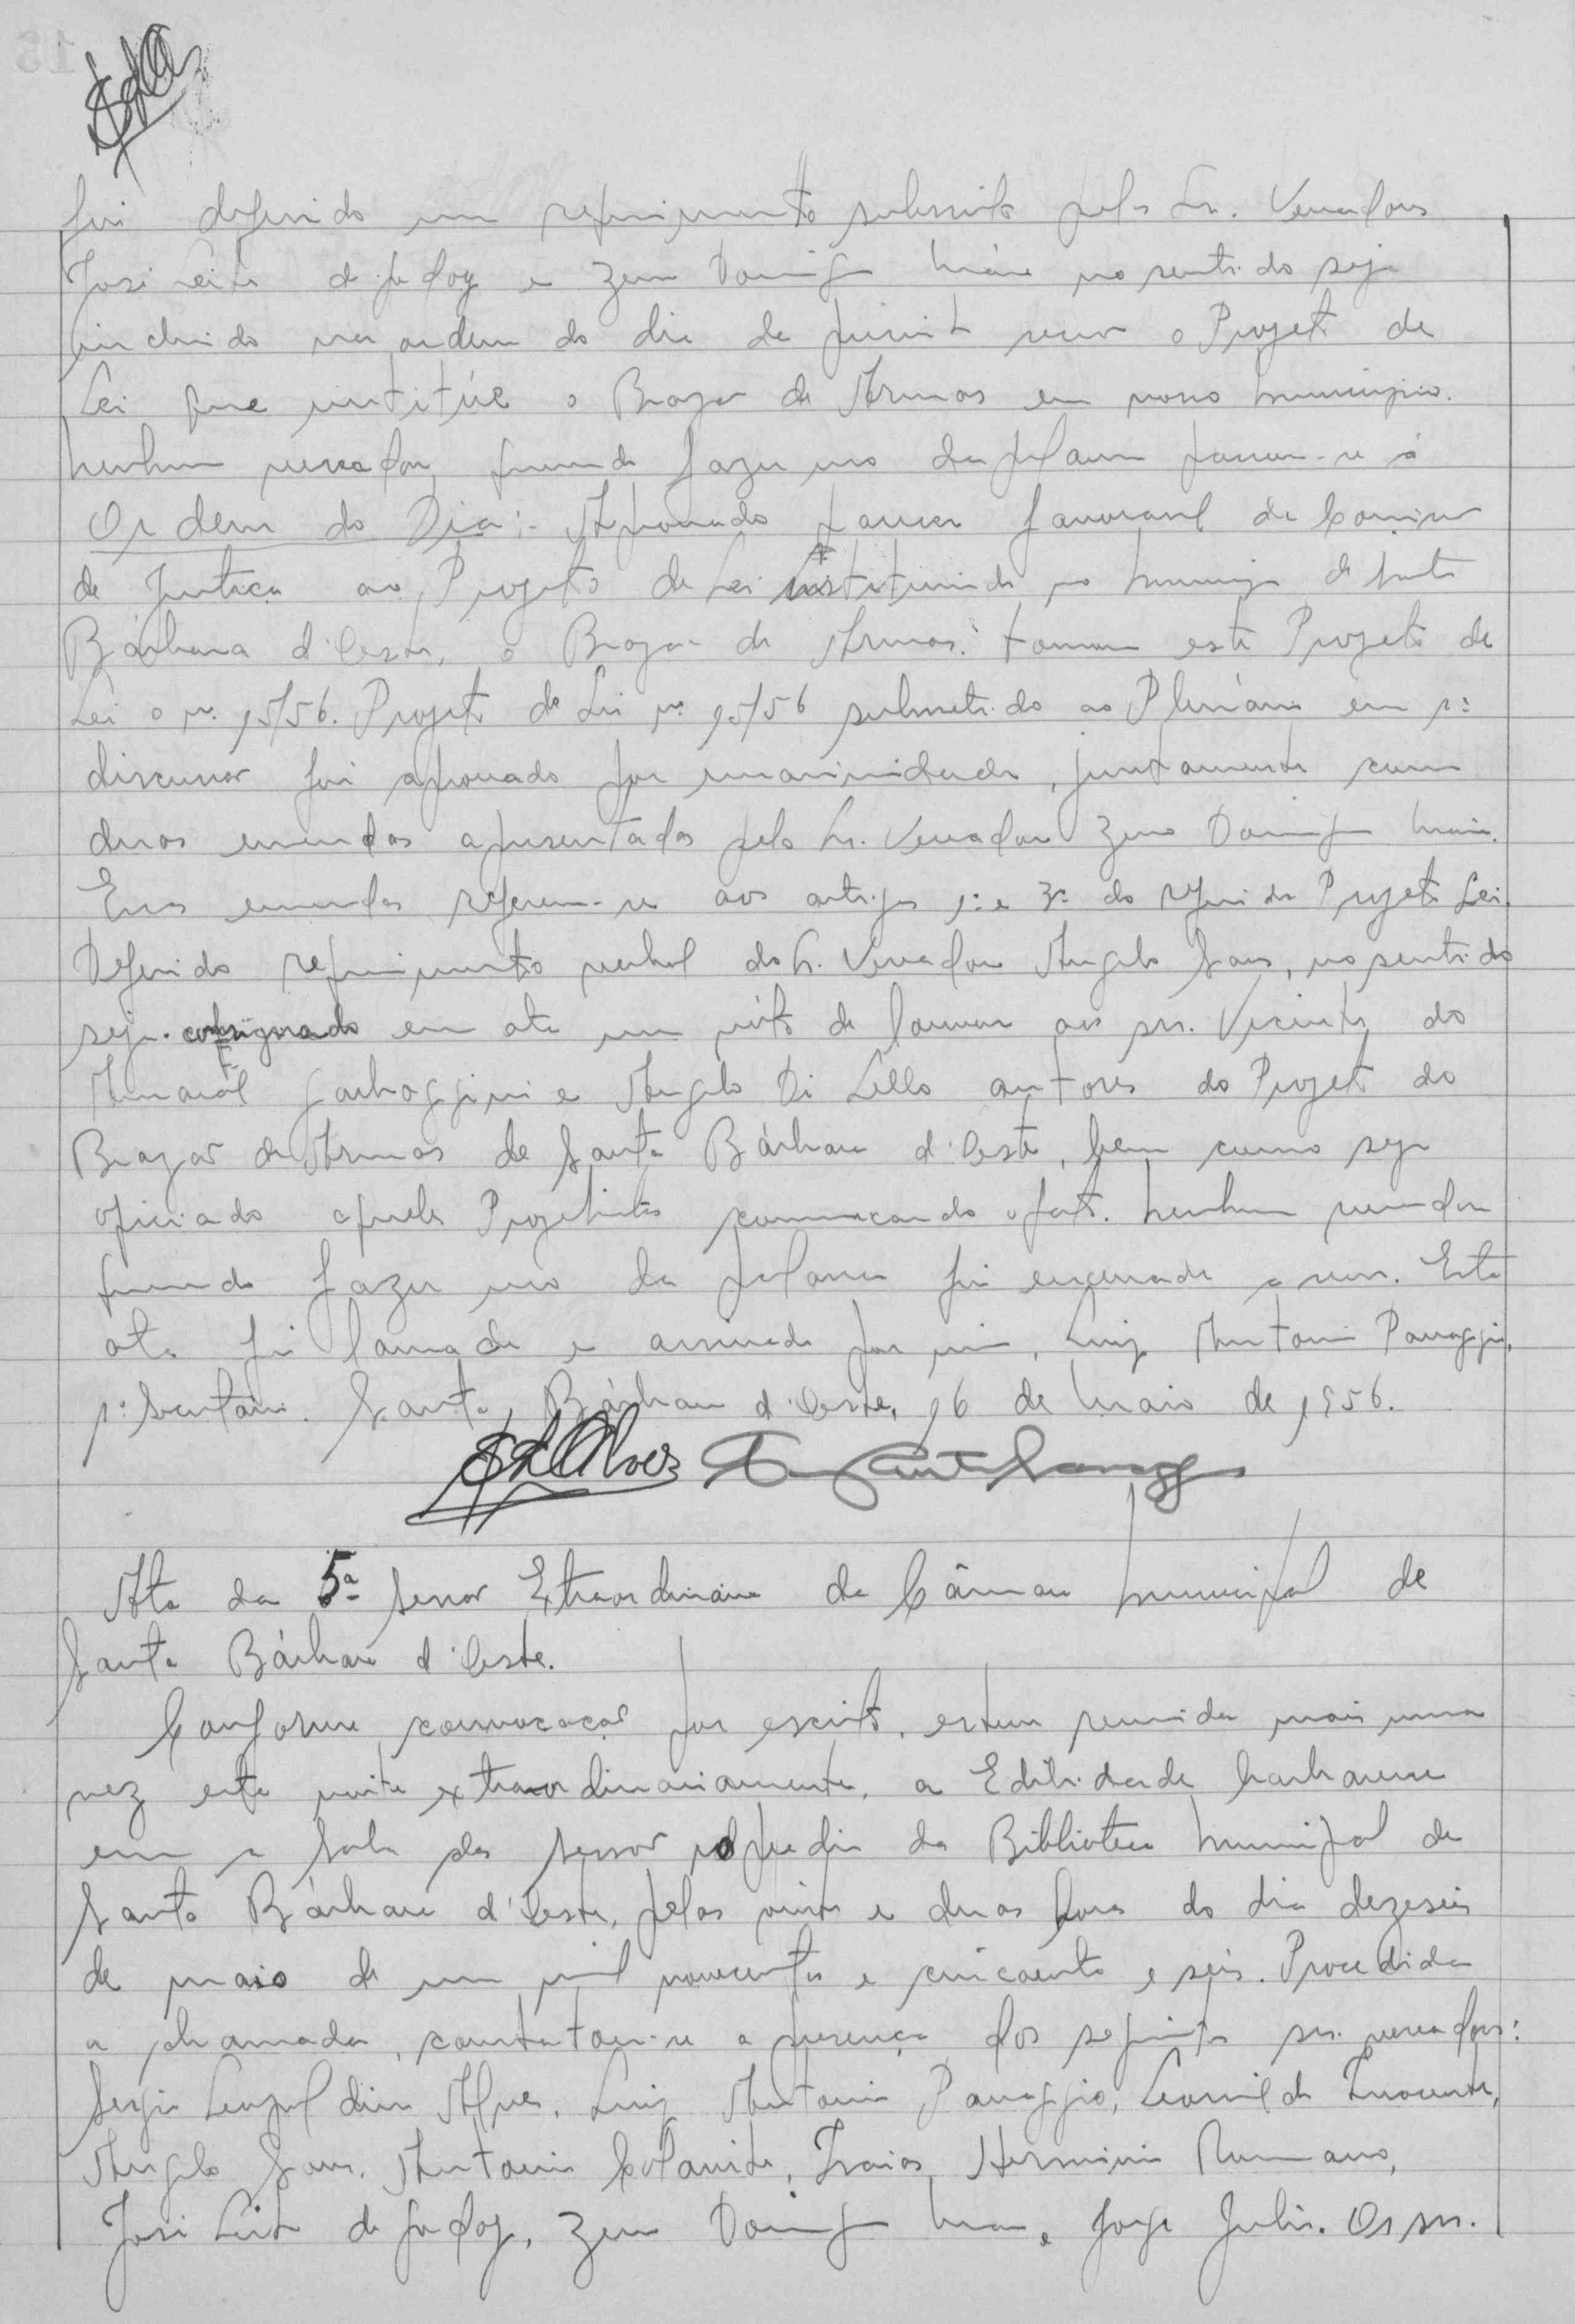 foi deferido um requerimento subscrito pelos Srs. Vereadores
José Leite de Godoy e Zeno Domingos Maia no sentido seja
incluido na ordem do dia da presente sessão o Projeto de
Lei que institúe o Brazão de Armas em nosso município.
Nenhum vereador querendo fazer uso da palavra passou-se á
Ordem do Dia:- Aprovado parecer favoravel da Comissão
de Justiça ao Projeto de Lei instituindo no município de Santa
Bárbara d'Oeste, o Brazão de Armas. tomou este Projeto de
Lei o nº 15/56. Projeto de Lei nº 15/56 submetido ao Plenário em 1ª
discussão foi aprovado por unanimidade, juntamente com
duas emendas apresentadas pelo Sr. Vereador Zeno Domingos Maia.
Essas emendas referem-se aos artigos 1º e 3º do referido Projeto Lei.
Deferido requerimento verbal do Sr. Vereador Angelo Sans, no sentido
seja consignado em ata um vóto de louvor aos srs. Vicente do
Amaral Garboggini e Angelo Di Lello autores do Projeto do
Brazão de Armas de Santa Bárbara d'Oeste, bem como seja
oficiado aqueles Projetistas comunicando o fato. Nenhum vereador
querendo fazer uso da palavra foi encerrada a sessão. Esta
ata foi lavrada e assinada por mim, Luiz Antonio Panaggio,
1º Secretário. Santa Bárbara d'Oeste, 16 de Maio de 1956.
Ata da 5ª Sessão Extraordinária da Câmara Municipal de
Santa Bárbara d'Oeste.
Conforme convocação por escrito, esteve reunida mais uma
vez esta noite extraordinariamente, a Edilidade barbarense
em a sala das sessões no predio da Biblioteca Municipal de
Santa Bárbara d'Oeste, pelas vinte e duas horas do dia dezeseis
de maio de um mil novecentos e cincoenta e seis. Procedida
a chamada, constatou-se a presença dos seguintes srs. vereadores:
Sergio Leopoldino Alves, Luiz Antonio Panaggio, Leonildo Inocente,
Angelo Sans, Antonio Isaias Herminio Romano,
José Leite de Godoy, Zeno Domingos Maia e Jorge Julio. Os srs.